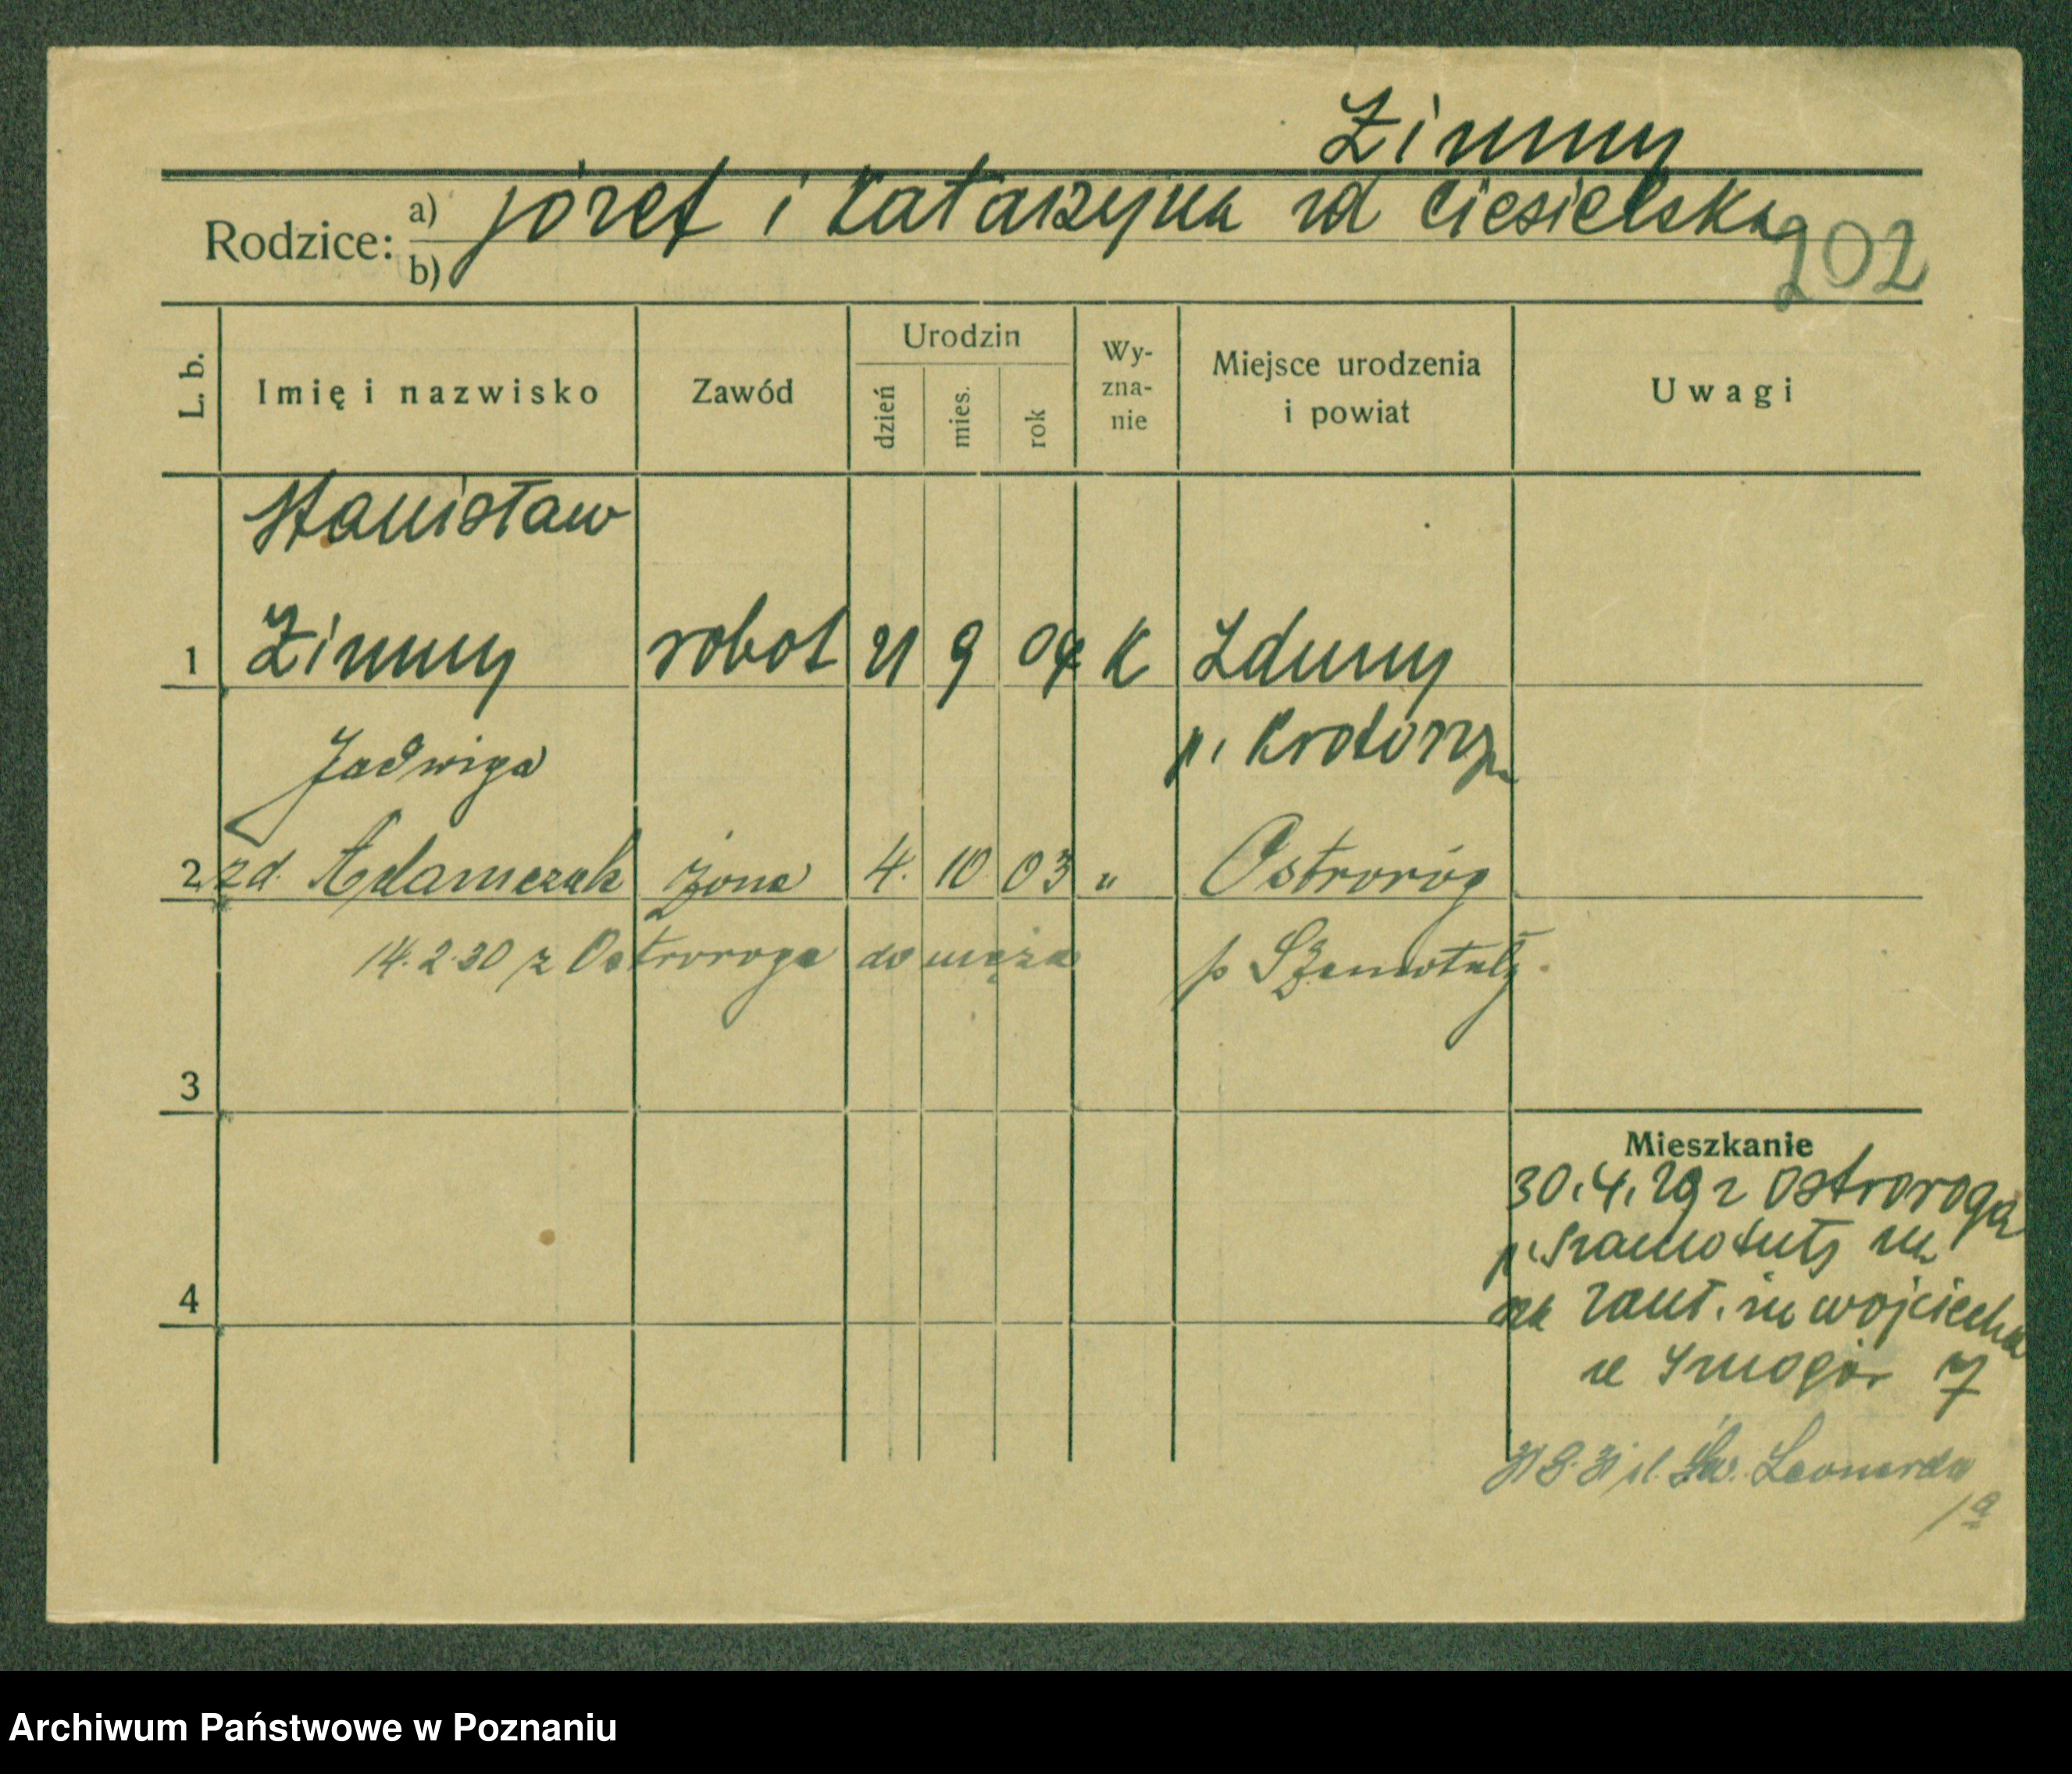 Zimny
Rodzice: a) józef i Katarzyna zd Ciesielska
b)
202
L. b. Imię i nazwisko Zawód Urodzin dzień mies. rok Wy-zna-nie Miejsce urodzenia i powiat Uwagi
Stanisław
1 Zimny robot 21 9 04 K Zduny
p. Krotoszyn
Jadwiga
2 zd. Adamczak żona 4. 10 03 " Ostroróg
14.2.30 z Ostroroga do męża p Szamotuły
3
Mieszkanie
30.4.29 z Ostroroga
p. Szamotuły
4
wojciecha
7
św. Leonarda
1a
Archiwum Państwowe w Poznaniu